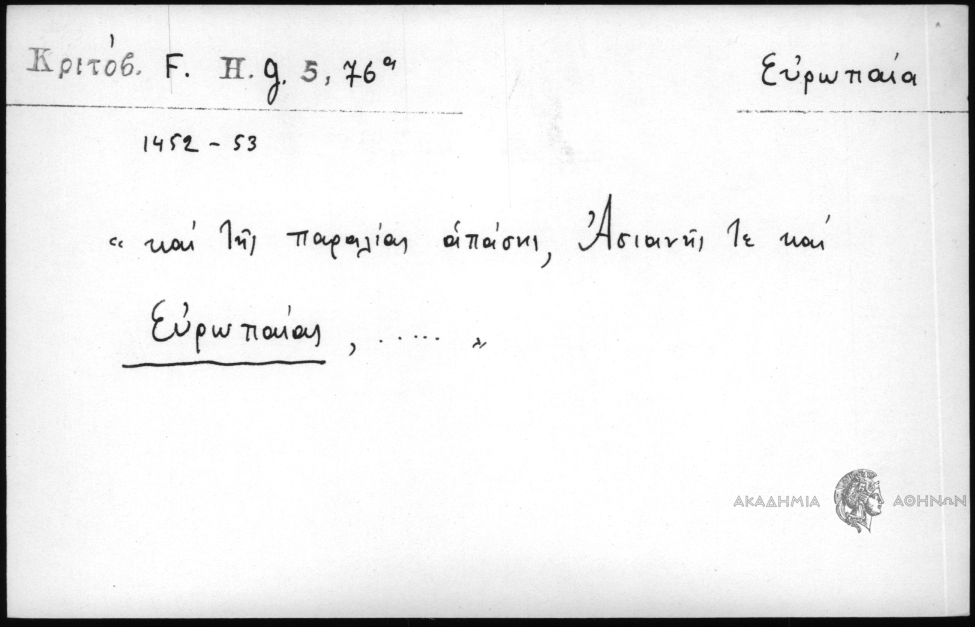 Κριτόβ. F. H. g. 5, 76α
Εὐρωπαία
1452 - 53
“ καί τῆς παραλίας ἁπάσης, Ἀσιανῆς τε καί
Εὐρωπαίας, ..... ”
ΑΚΑΔΗΜΙΑ ΑΘΗΝΩΝ